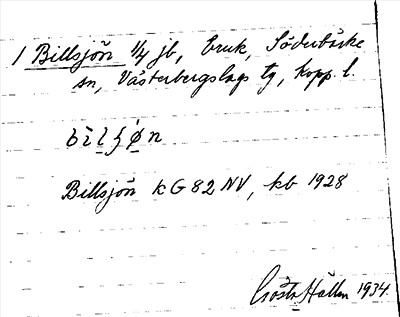 1 Billsjön 1/4 jb, bruk, Söderbärke
sn, Västerbergslags tg, Kopp. l.
bilʃön
Billsjön KG 82 NV, kb 1928
Gösta Hallen 1934